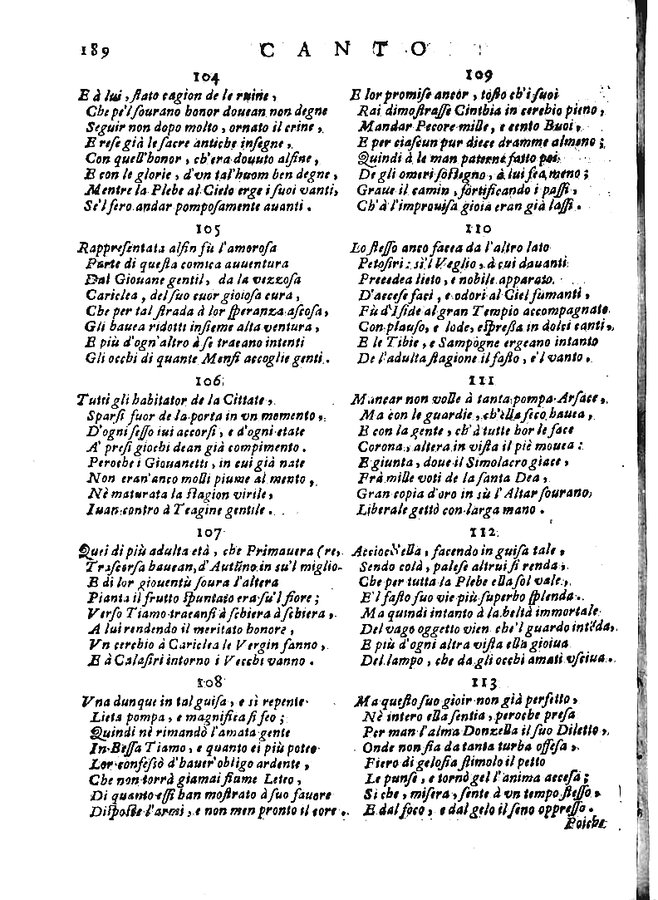 189 CANTO
104
E à lui, ſtato cagion de le ruine,
Che pe'l ſourano honor douean non degne
Seguir non dopo molto, ornato il crine,
E rese già le ſacre antiche inſegne,
Con quell'honor, ch'era douuto alfine,
E con le glorie, d'vn tal'huom ben degne,
Mentre la Plebe al Cielo erge i ſuoi vanti,
Se'l fero andar pompoſamente auanti.
105
Rappreſentata alfin fù l'amoroſa
Parte di queſta comica auuentura
Dal Giouane gentil, da la vezzoſa
Cariclea, del ſuo cuor gioioſa cura,
Che per tal ſtrada à lor ſperanza aſcoſa,
Gli hauea ridotti inſieme alta ventura,
E più d'ogn'altro à ſe traeano intenti
Gli occhi di quante Menfi accoglie genti.
106
Tutti gli habitator de la Cittate,
Sparſi fuor de la porta in vn momento,
D'ogni ſeſſo iui accorſi, e d'ogni etate
A' preſi giochi dean già compimento.
Peroche i Giouanetti, in cui già nate
Non eran'anco molli piume al mento,
Nè maturata la ſtagion virile,
Iuan contro à Teagine gentile.
107
Quei di più adulta età, che Primauera (re,
Traſcorſa hauean, d'Autũno in ſu'l miglio-
E di lor giouentù ſoura l'altera
Pianta il frutto ſpuntato era ſu'l fiore;
Verſo Tiamo traeanſi à ſchiera à ſchiera,
A lui rendendo il meritato honore,
Vn cerchio à Cariclea le Vergin fanno,
E à Calaſiri intorno i Vecchi vanno.
108
Vna dunque in tal guiſa, e sì repente
Lieta pompa, e magnifica ſi feo;
Quindi nè rimandò l'amata gente
In Beſſa Tiamo, e quanto ei più poteo
Lor confeſsò d'hauer'obligo ardente,
Che non torrà giamai fiume Leteo,
Di quanto eſſi han moſtrato à ſuo fauore
Diſpoſte l'armi, e non men pronto il core.
109
E lor promiſe ancor, toſto ch'i ſuoi
Rai dimoſtraſſe Cinthia in cerchio pieno,
Mandar Pecore mille, e cento Buoi,
E per ciaſcun pur diece dramme almeno;
Quindi à le man paterne faſto poi
De gli omeri ſoſtegno, à lui ſea meno;
Graue il camin, fortificando i paſſi,
Ch'à l'improuiſa gioia eran già laſſi.
110
Lo ſteſſo anco facea da l'altro lato
Petoſiri: sì'l Veglio, à cui dauanti
Precedea lieto, e nobile apparato
D'acceſe faci, e odori al Ciel fumanti,
Fù d'Iſide al gran Tempio accompagnato
Con plauſo, e lode, eſpreſſa in dolci canti,
E le Tibie, e Sampogne ergeano intanto
De l'adulta ſtagione il faſto, e'l vanto.
111
Mancar non volle à tanta pompa Arſace,
Ma con le guardie, ch'ella ſeco hauea,
E con la gente, ch'à tutte hor le face
Corona, altera in viſta il piè mouea:
E giunta, doue il Simolacro giace,
Frà mille voti de la ſanta Dea,
Gran copia d'oro in sù l'Altar ſourano,
Liberale gettò con larga mano.
112
Acciocch'ella, facendo in guiſa tale,
Sendo colà, palese altrui ſi renda,
Che per tutta la Plebe ella ſol vale,
E'l faſto ſuo vie più ſuperbo ſplenda.
Ma quindi intanto à la beltà immortale
Del vago oggetto vien che'l guardo intẽda,
E più d'ogni altra viſta ella gioiua
Del lampo, che da gli occhi amati vſciua.
113
Ma queſto ſuo gioir non già perfetto,
Nè intero ella ſentia, peroche preſa
Per man l'alma Donzella il ſuo Diletto,
Onde non ſia da tanta turba offeſa,
Fiero di geloſia ſtimolo il petto
Le punſe, e tornò gel l'anima acceſa;
Si che, miſera, ſente à vn tempo ſteſſo
E dal foco, e dal gelo il ſeno oppreſſo.
Poiche